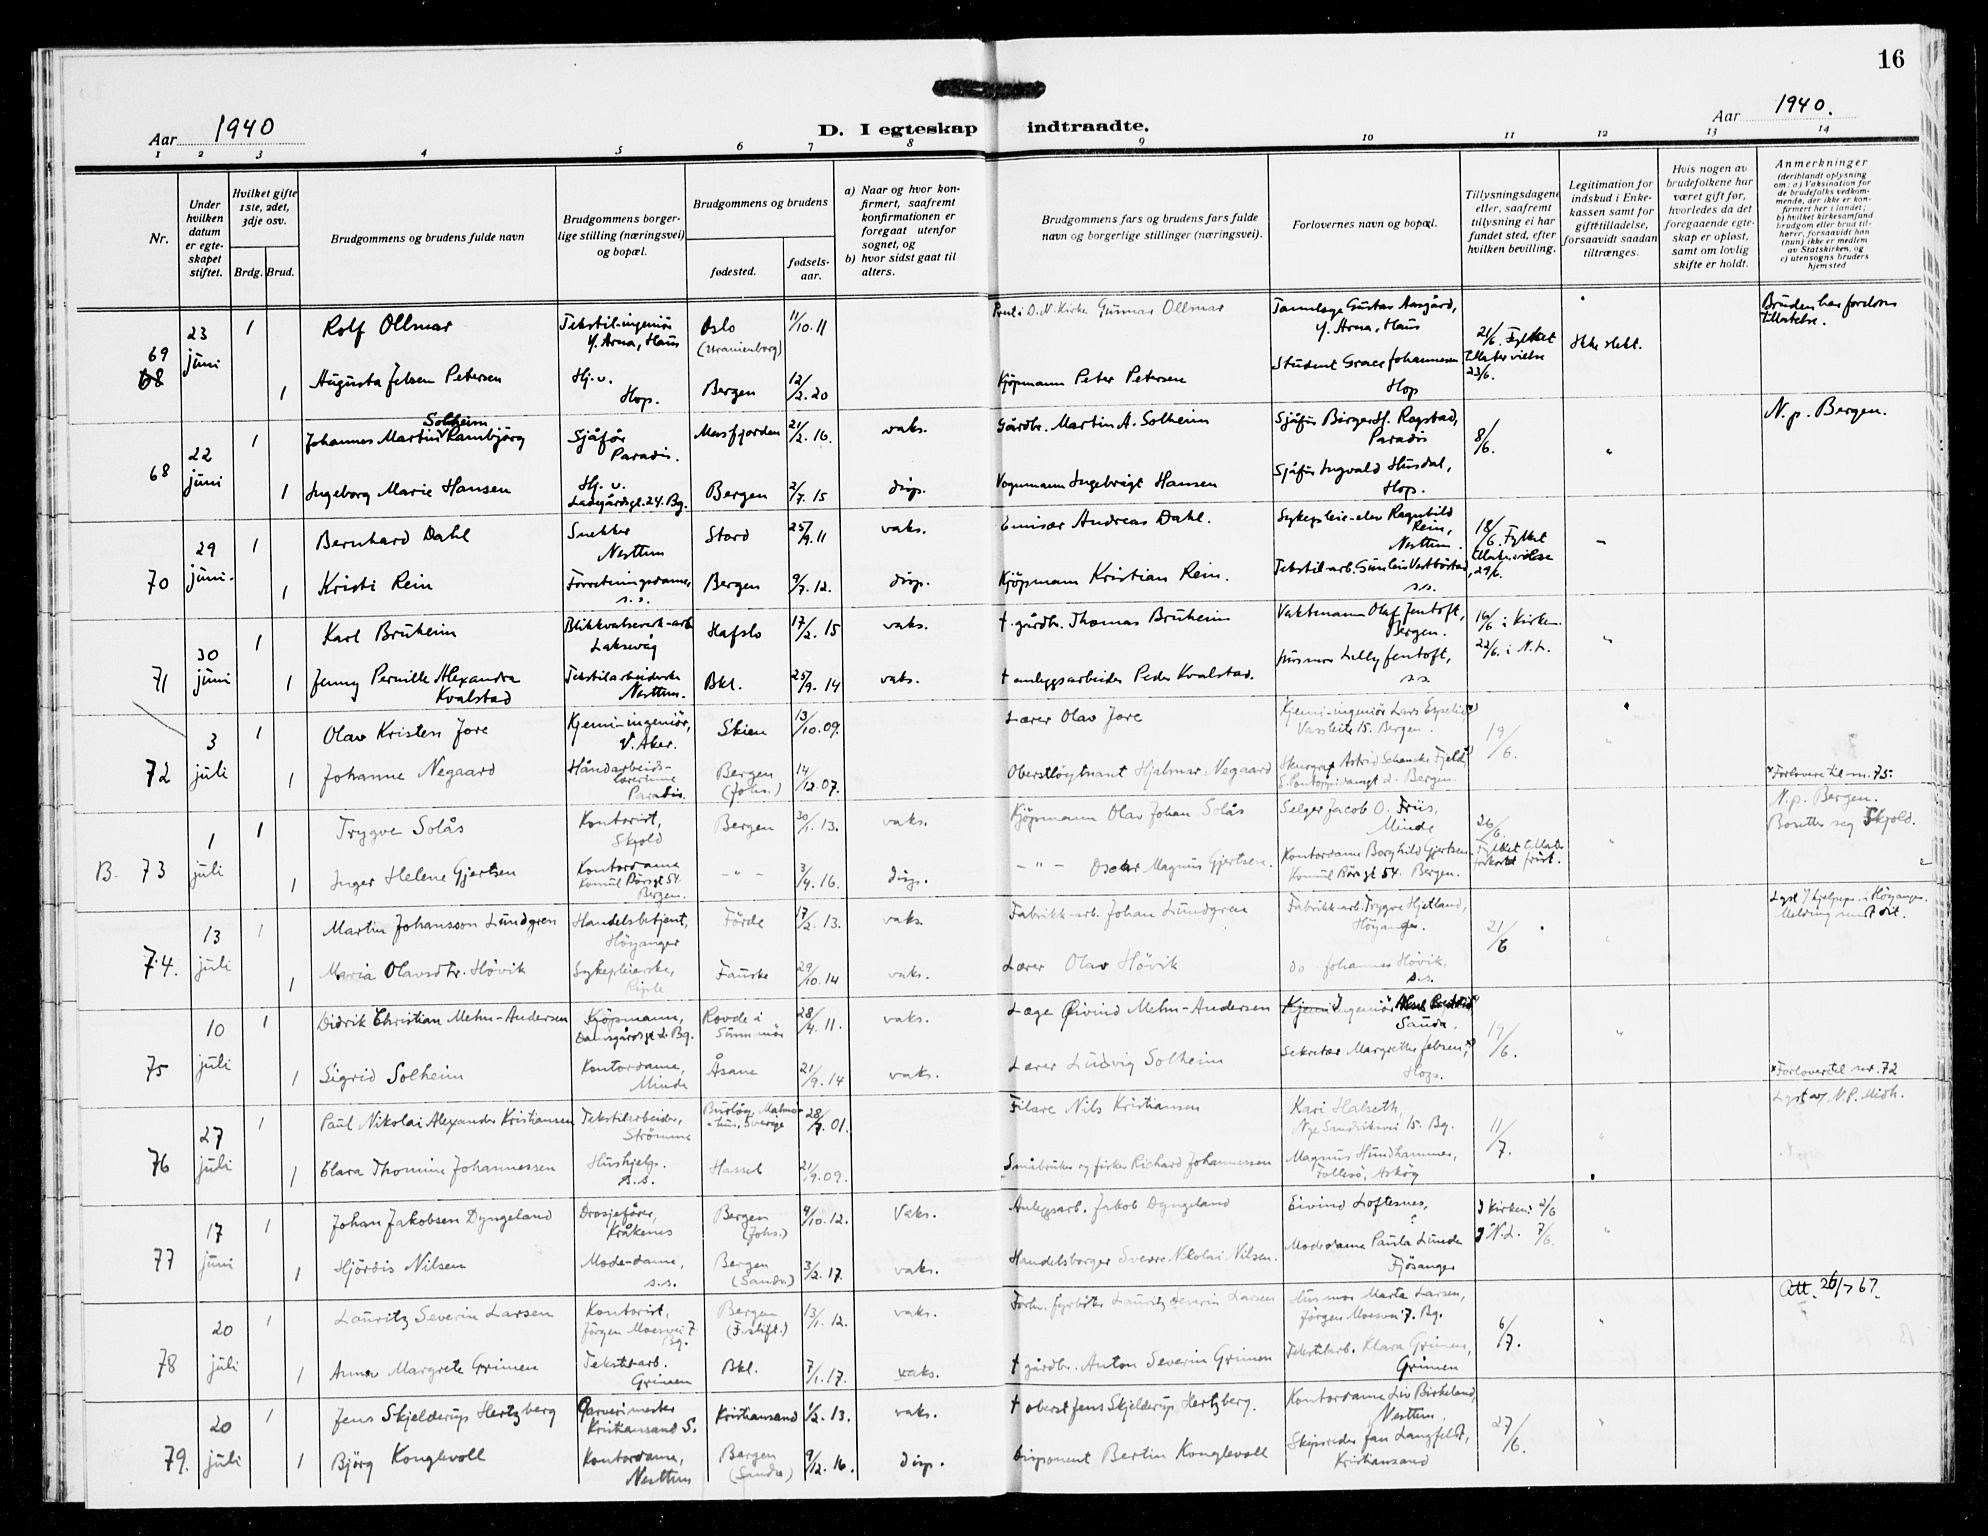 16
Aar 1940
D. I egteskap indtraadte.
Aar 1940.
1 2 3 4 5 6 7 8 9 10 11 12 13 14
Nr.
Under hvilken datum er egteskapet stiftet.
Hvilket gifte 1ste, 2det, 3dje osv.
Brdg. Brud.
Brudgommens og brudens fulde navn
Brudgommens borgerlige stilling (næringsvei) og bopæl.
Brudgommens og brudens
fødested.
fødselsaar.
a) Naar og hvor konfirmert, saafremt konfirmationen er foregaat utenfor sognet, og
b) hvor sidst gaat til alters.
Brudgommens fars og brudens fars fulde navn og borgerlige stillinger (næringsvei).
Forlovernes navn og bopæl.
Tillysningsdagene eller, saafremt tillysning ei har fundet sted, efter hvilken bevilling.
Legitimation for indskud i Enkekassen samt for gifttilladelse, forsaavidt saadan tiltrænges.
Hvis nogen av brudefolkene har været gift før, hvorledes da det foregaaende egteskap er opløst, samt om lovlig skifte er holdt.
Anmerkninger
(deriblandt oplysning om: a) Vaksination for de brudefolks vedkommende, der ikke er konfirmert her i landet; b) hvilket kirkesamfund brudgom eller brud tilhører, forsaavidt han (hun) ikke er medlem av Statskirken, og c) utensogns bruders hjemsted
69 23 juni 1 Rolf Ollmar Tekstil-ingeniør Y. Arna, Haus Oslo (Uranienborg) 11/10.11 Gunnar Ollmar Tannlege Gustav Aasgård, Y. Arna, Haus 21/6. Fylket Ikke stekl. Bruden har farens tillatelse.
1 Augusta Jebsen Petersen Hj.v. Hop. Bergen 12/2.20 Kjøpmann Peter Petersen Student Grace Johannesen Hop 23/6.
68 22 juni 1 Johannes Martin Solheim Rambjørg Sjåfør Paradis. Masfjorden 21/2.16. vaks. Gårdbr. Martin A. Solheim Sjåfør Birger H. Ragstad, Paradis 8/6. " N.p. Bergen.
1 Ingeborg Marie Hansen Hj. v. Ladegårdsgt. 24. Bg. Bergen 2/7.15 disp. Vognmann Ingebrigt Hansen Sjåfør Ingvald Husdal, Hop.
70 29 juni. 1 Bernhard Dahl Snekker Nesttun Stord 25/9.11 vaks. Emissær Andreas Dahl. Sykepleie-elev Ragnhild Rein, Nesttun. 18/6. Fylket
1 Kristi Rein Forretningsdame, s.s. Bergen 9/7.12. disp. Kjøpmann Kristian Rein. 29/6.
71 30 juni 1 Karl Bruheim Laksevåg Hafslo 17/2.15 vaks. † gårdbr. Thomas Bruheim Vaktmann Olaf Jentoft, Bergen. 16/6 i Kirken. "
1 Jenny Pernille Alexandra Kvalstad Tekstilarbeiderske Nesttun. Bkl. 25/9.14 vaks. † anleggsarbeider Peder Kvalstad. Husmor Lilly Jentoft, s.s. 22/6. i N.L.
72 3 juli 1 Olav Kristen Jore Kjemi-ingeniør, V. Aker. Skien 13/10.09. Lærer Olav Jore Kjemi-ingeniør Lars Espelid Vassleite 15. Bergen. 19/6. "
1 Johanne Negaard Håndarbeidslærerinne Paradis. Bergen (Johs.) 14/12.07. Oberstløytnant Hjalmar Negaard Bergen. Forlovere til nr. 75.
B. 73 1 juli 1 Trygve Solås Kontorist, Skjold Bergen 30/1.13. vaks. Kjøpmann Olav Johan Solås Selger Jacob O. Friis, Minde 26/6. " N.p. Bergen. Bosetter seg Skjold.
1 Inger Helene Gjertsen Kontordame Konsul Børsgt 54. Bergen. - " - 3/4.16. disp. - " - Oscar Magnus Gjertsen. Kontordame Borghild Gjertsen. Konsul Børsgt 54. Bergen.
74. 13 juli 1 Martin Johansson Lundgren Handelsbetjent, Høyanger Førde 17/2.13. vaks. Fabrikk-arb. Johan Lundgren Fabrikk-arb. Trygve Hjetland, Høyanger. 21/6 " Melding sendt dit.
1 Maria Olavsdtr. Høvik Sykepleierske, Riple Fauske 29/10.14 vaks. Lærer Olav Høvik do. Johannes Høvik, s.s.
75 10 juli 1 Didrik Christian Mehn-Andersen Kjøpmann, Damsgårdsgt Bg. Rovde i Sunnmør 28/4.11. vaks. Læge Øivind Mehn-Andersen Sauda, 19/6. "
1 Sigrid Solheim Kontordame, Minde Åsane 21/9.14 vaks. Lærer Ludvig Solheim Sekretær Margrethe Jebsen, Hop. Forlover til nr. 72
76 27 juli 1 Paul Nikolai Alexander Kristiansen Tekstilarbeider, Strømme 28/7.01. Filare Nils Kristiansen Kari Halseth, Nye Sandviksvei 15. Bg. 11/7. " Lyst av N.P. Mich.
1 Clara Thomine Johannessen Hushjelp. s.s. Hassel 21/9.09. Småbruker og fisker Richard Johannessen Magnus Hundhammer, Follesø, Askøy
77 17 juni 1 Johan Jakobsen Dyngeland Drosjefører, Kråkenes Bergen (Johs.) 9/10.12. Vaks. Anleggsarb. Jakob Dyngeland Eivind Loftesnes, ? I kirken: 2/6 "
1 Hjørdis Nilsen Mode-dame, s.s. Bergen (Sandv.) 3/2.17. vaks. Handelsborger Sverre Nikolai Nilsen. Modedame Paula Lunde Fjøsanger I N.L. 7/6.
78 20 juli 1 Lauritz Severin Larsen Kontorist, Jørgen Moesvei 7. Bg. Bergen (F.stift.) 13/1.12. vaks. Forh. fyrbøter Lauritz Severin Larsen Husmor Marta Larsen, Jørgen Moesvei 7. Bg. 6/7. " Att. 26/7 67.
1 Anna Margrete Grimen Tekstilarb. Grimen Bkl. 7/1.17. vaks. † gårdbr. Anton Severin Grimen Tekstilarb. Klara Grimen, Grimen
79. 20 juli 1 Jens Skjelderup Hertzberg Garverimester Kristiansand S. Kristiansand 1/2.13. vaks. † oberst Jens Skjelderup Hertzberg. Kontordame Liv Birkeland, Nesttun. 27/6. "
1 Bjørg Konglevoll Kontordame, Nesttun Bergen (Sandv.) 9/12.16. disp. Disponent Bertin Konglevoll Skipsreder Jan Langfeldt, Kristiansand